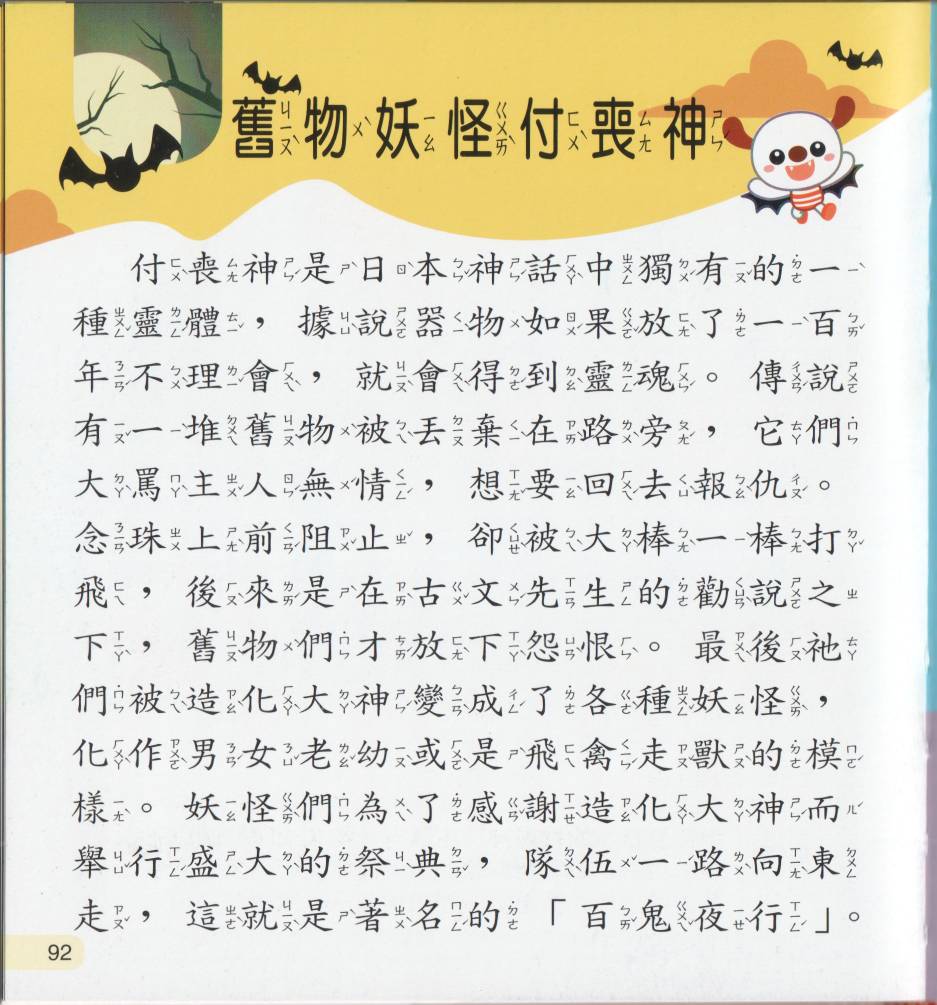 舊物妖怪付喪神
付喪神是日本神話中獨有的一
種靈體，據說器物如果放了一百
年不理會，就會得到靈魂。傳說
有一堆舊物被丟棄在路旁，它們
大罵主人無情，想要回去報仇。
念珠上前阻止，卻被大棒一棒打
飛，後來是在古文先生的勸說之
下，舊物們才放下怨恨。最後祂
們被造化大神變成了各種妖怪，
化作男女老幼或是飛禽走獸的模
樣。妖怪們為了感謝造化大神而
舉行盛大的祭典，隊伍一路向東
走，這就是著名的「百鬼夜行」。
92